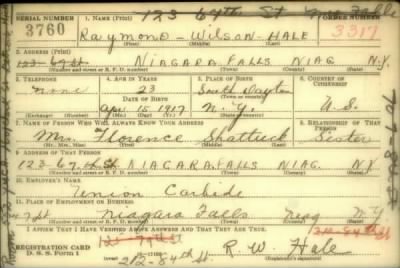 123 67th St Falls
SERIAL NUMBER 1. NAME (Print) ORDER NUMBER
3760 Raymond - Wilson - HALE 3317
(First) (Middle) (Last)
2. ADDRESS (Print)
123 67 St NIAGARA FALLS NIAG. N.Y.
(Number and street or R. F. D. number) (Town) (County) (State)
3. TELEPHONE 4. AGE IN YEARS 5. PLACE OF BIRTH 6. COUNTRY OF CITIZENSHIP
none 23 South Dayton
DATE OF BIRTH
Apr 15 1917 N.Y. U.S.
(Exchange) (Number) (Mo.) (Day) (Yr.) (State or country)
7. NAME OF PERSON WHO WILL ALWAYS KNOW YOUR ADDRESS 8. RELATIONSHIP OF THAT PERSON
Mrs. Florence Shattuck Sister
(Mr., Mrs., Miss) (First) (Middle) (Last)
9. ADDRESS OF THAT PERSON
123 67th St NIAGARA FALLS NIAG. N.Y.
(Number and street or R. F. D. number) (Town) (County) (State)
10. EMPLOYER'S NAME
Union Carbide
11. PLACE OF EMPLOYMENT OR BUSINESS
Niagara Falls Niag N.Y.
(Number and street or R. F. D. number) (Town) (County) (State)
I AFFIRM THAT I HAVE VERIFIED ABOVE ANSWERS AND THAT THEY ARE TRUE. 212-84th St
REGISTRATION CARD
D. S. S. Form 1
R. W. Hale
212-84th St.